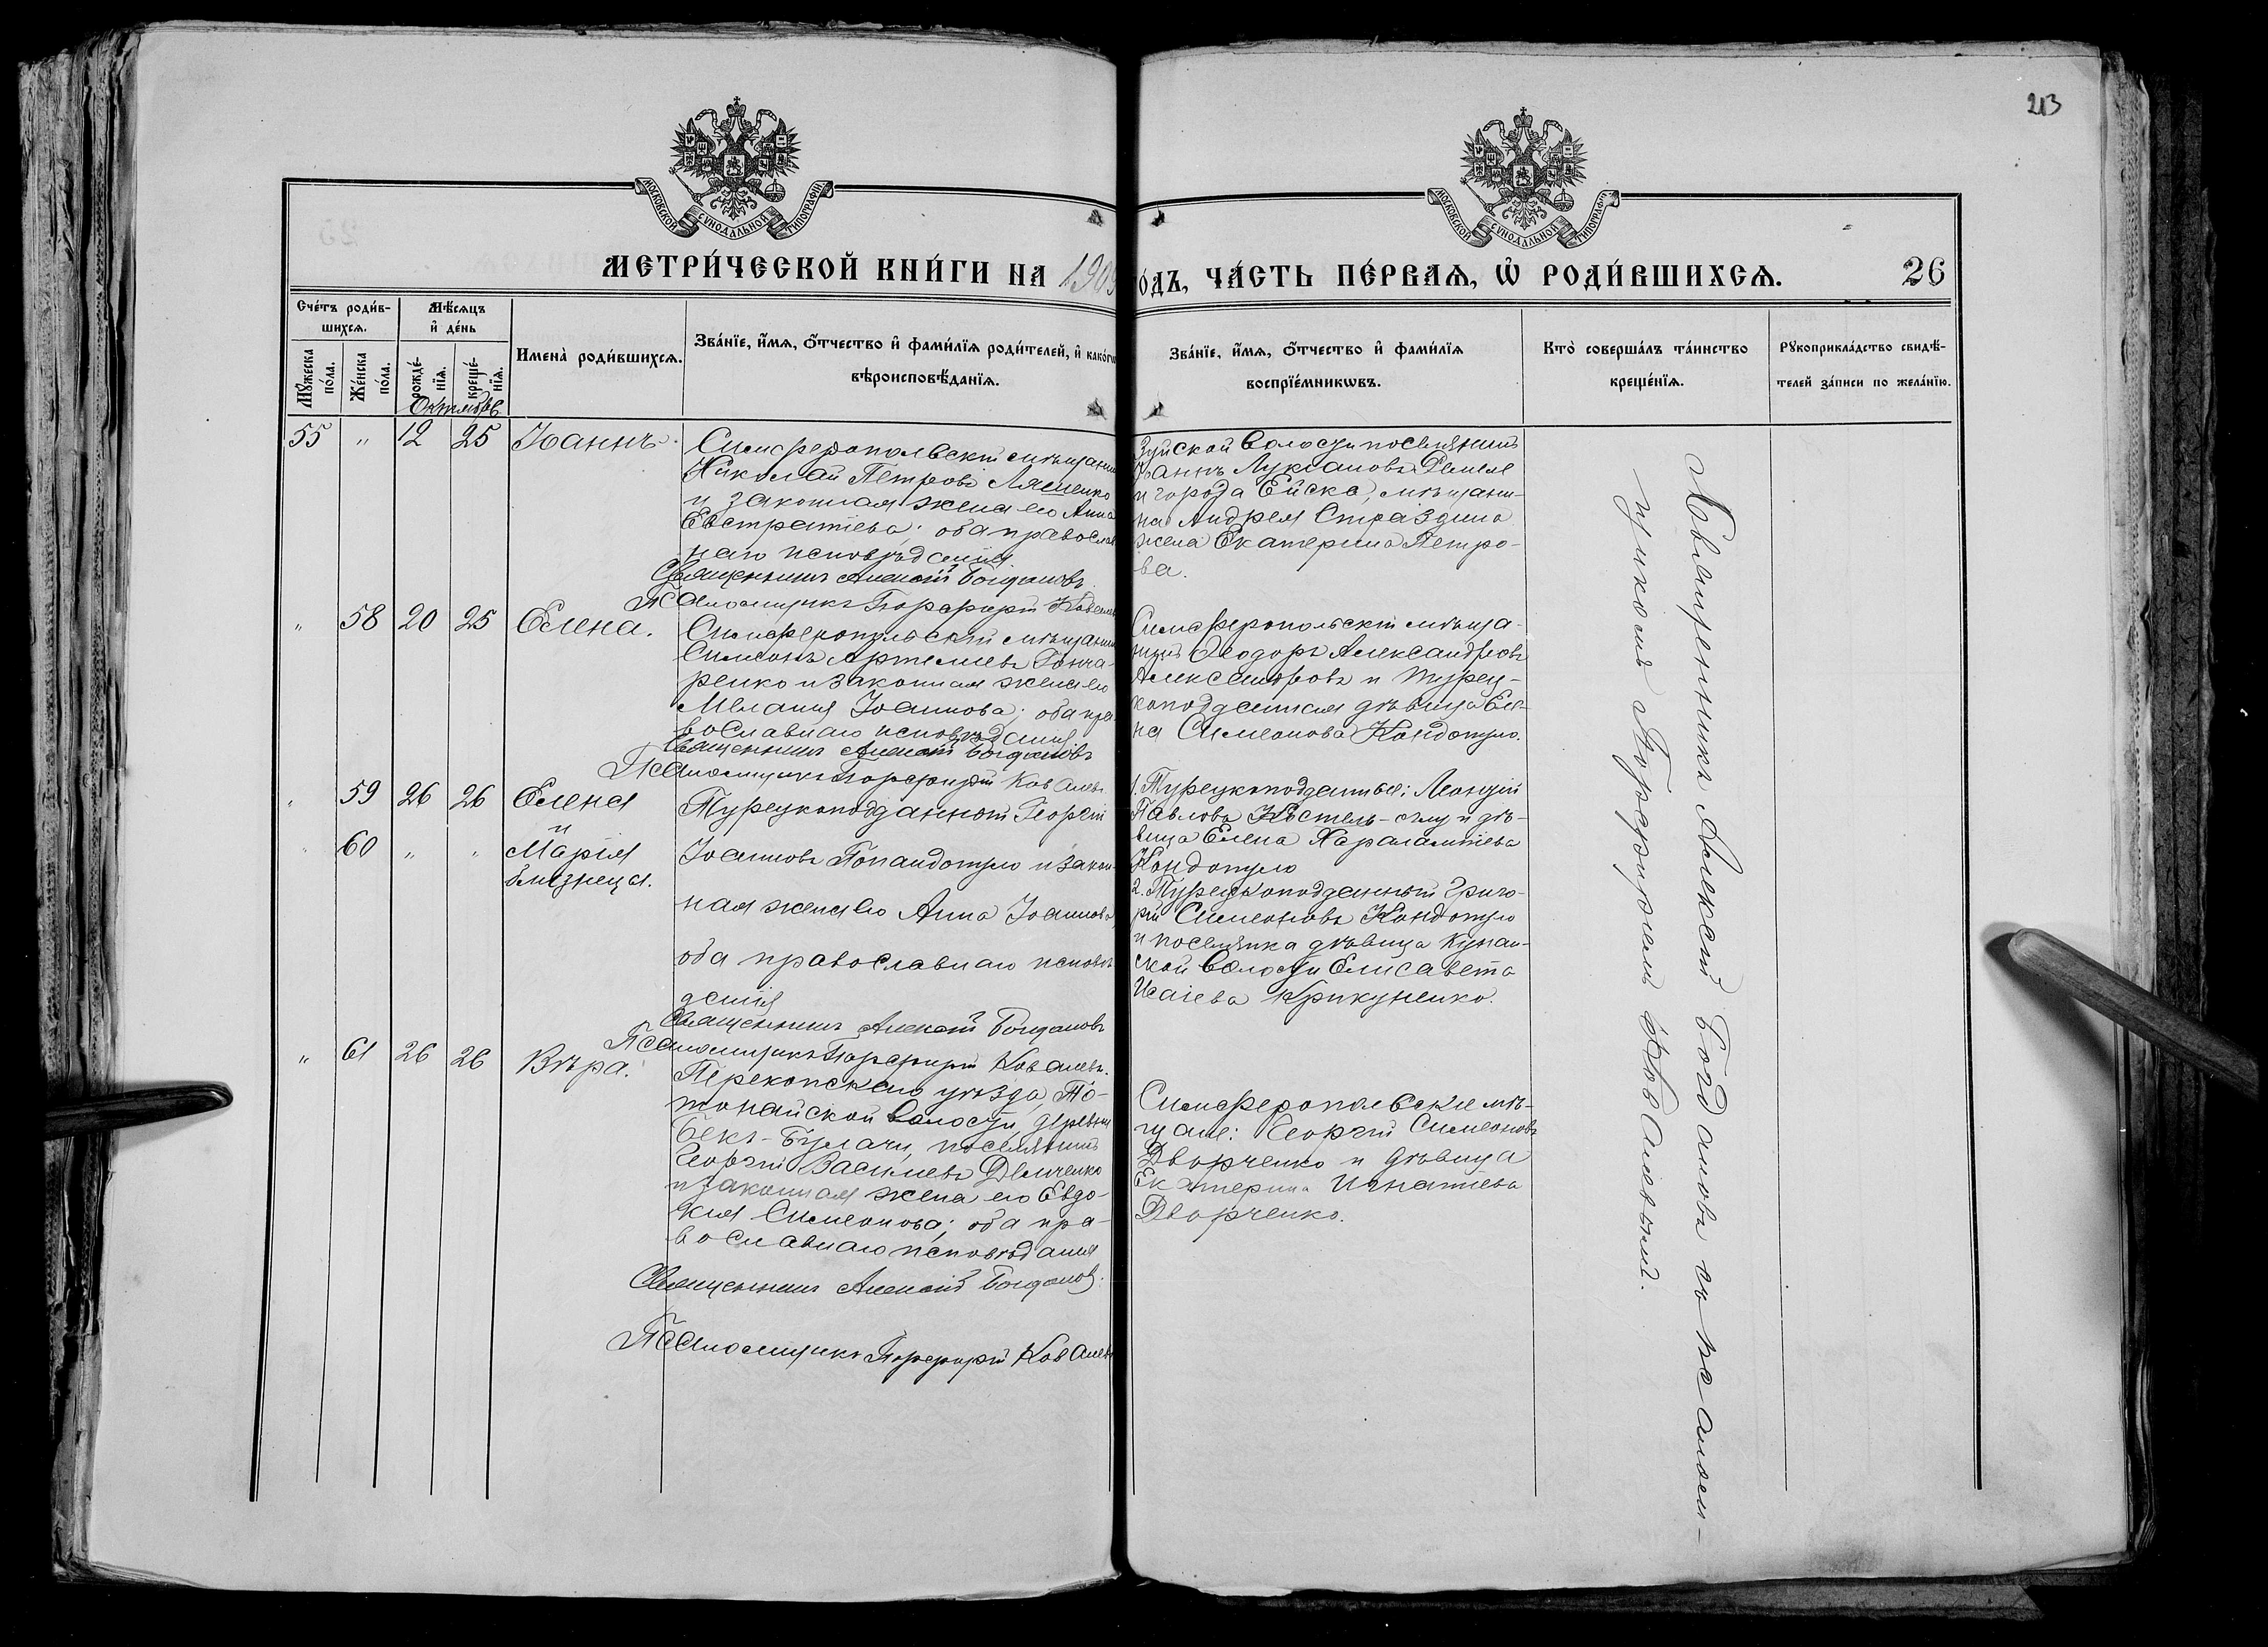 213
МОСКОВСКОЙ СѴНОДАЛЬНОЙ ТИПОГРАФІИ
МОСКОВСКОЙ СѴНОДАЛЬНОЙ ТИПОГРАФІИ
МЕТРИ́ЧЕСКОЙ КНИ́ГИ НА 1909
О́ДЪ, ЧА́СТЬ ПЕ́РВАѦ, Ѽ РОДИ́ВШИХСѦ.
26
Сче́тъ роди́в-
шихсѧ.
Мꙋ́жеска по́ла.
Же́нска по́ла.
Мѣ́сѧцъ
и҆ де́нь
рожде́-
нїѧ.
креще́-
нїѧ.
Октябрь
Имена̀ роди́вшихсѧ.
Зва́нїе, и҆́мѧ, ѻ҆́тчество и҆ фами́лїѧ роди́телей, и҆ како́гѡ
вѣроисповѣ́данїѧ.
Зва́нїе, и҆́мѧ, ѻ҆́тчество и҆ фами́лїѧ
воспрїе́мникѡвъ.
Кто̀ соверша́лъ та́инство
креще́нїѧ.
Рꙋкоприкла́дство свидѣ́-
телей за́писи по жела́нїю.
55 " 12 25 Іоаннъ.
Симферопольскій мѣщанин
Николай Петровъ Ляшенко
и законная жена его Анна
Евстратіева; оба православ
наго исповѣданія.
Священникъ Алексій Богдановъ
Псаломщикъ Порфирій Ковалев
Зуйской волости поселянинъ
Іоаннъ Лукіановъ
и города Ейска, мѣщани-
на Андрея Страздина
жена Екатерина Петро-
ва.
" 58 20 25 Елена.
Симферопольскій мѣщанин
Симеонъ Артеміевъ Гонча-
ренко и законная жена его
Меланія Іоаннова; оба пра-
вославнаго исповѣданія
Священникъ Алексій Богдановъ
Псаломщикъ Порфирій Ковалевъ
Симферопольскій мѣща-
нинъ Ѳеодоръ Александровъ
Александровъ и турец-
коподданная дѣвица Еле-
на Симеонова Кондопуло.
" 59 26 26 Елена
и
" 60 " " Марія
близнеца.
Турецкоподданный Георгій
Іоанновъ Попандопуло и закон-
ная жена его Анна Іоаннова,
оба православнаго исповѣ
данія
Священникъ Алексій Богдановъ
Псаломщикъ Порфирій Ковалевъ.
1. Турецкоподданные: Леонтій
Павловъ и дѣ-
вица Елена Харалампіева
Кондопуло
2. Турецкоподданный Григо-
рій Симеоновъ Кондопуло
и поселянка дѣвица
ской волости Елисавета
Исаіева Крикуненко.
" 61 26 26 Вѣра.
Перекопскаго уѣзда, То-
тонайской волости, деревни
Бекъ-Булачи, поселянинъ
Георгій Василіевъ Демченко
и законная жена его Евдо-
кія Симеонова; оба пра-
вославнаго исповѣданія
Священникъ Алексій Богдановъ.
Псаломщикъ Порфирій Ковалевъ
Симферопольскіе мѣ-
щане: Георгій Симеоновъ
Дворченко и дѣвица
Екатерина Игнатіева
Дворченко.
Священникъ Алексій Богдановъ съ псалом-
щикомъ Порфиріемъ Ковалевымъ.